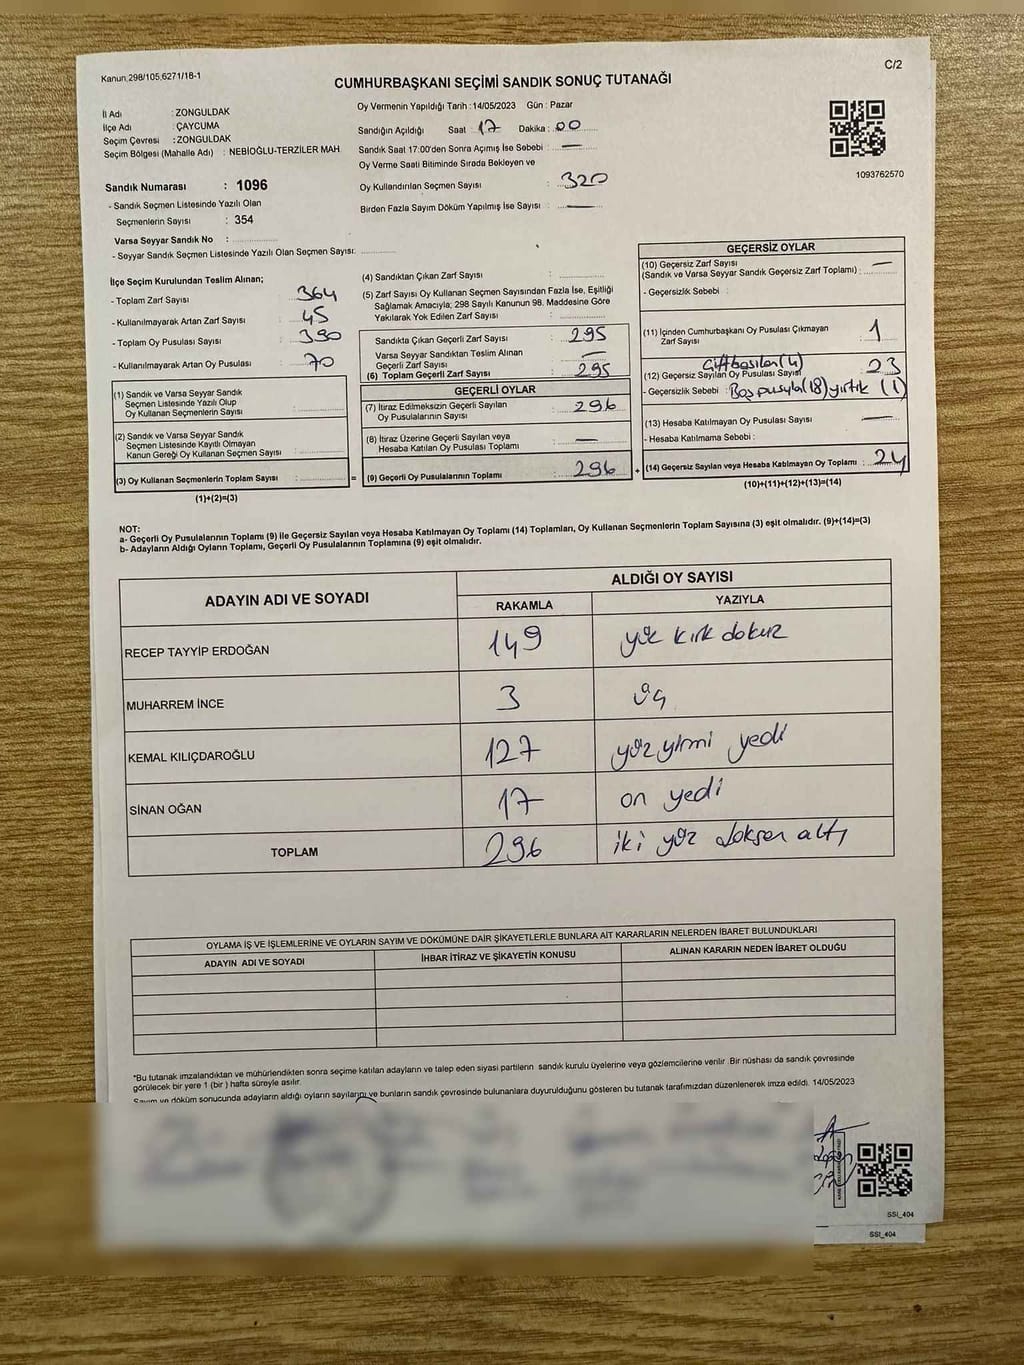 Kanun,298/105,6271/18-1
C/2
CUMHURBAŞKANI SEÇİMİ SANDIK SONUÇ TUTANAĞI
İl Adı : ZONGULDAK
İlçe Adı : ÇAYCUMA
Seçim Çevresi : ZONGULDAK
Seçim Bölgesi (Mahalle Adı) : NEBİOĞLU-TERZİLER MAH.
Sandık Numarası : 1096
- Sandık Seçmen Listesinde Yazılı Olan
Seçmenlerin Sayısı : 354
Varsa Seyyar Sandık No :
- Seyyar Sandık Seçmen Listesinde Yazılı Olan Seçmen Sayısı:
Oy Vermenin Yapıldığı Tarih :14/05/2023 Gün : Pazar
Sandığın Açıldığı Saat : 17 Dakika : 00
Sandık Saat 17:00'den Sonra Açımış İse Sebebi : —
Oy Verme Saati Bitiminde Sırada Bekleyen ve
Oy Kullandırılan Seçmen Sayısı : 320
Birden Fazla Sayım Döküm Yapılmış İse Sayısı : —
1093762570
İlçe Seçim Kurulundan Teslim Alınan;
- Toplam Zarf Sayısı : 364
- Kullanılmayarak Artan Zarf Sayısı : 45
- Toplam Oy Pusulası Sayısı : 390
- Kullanılmayarak Artan Oy Pusulası : 70
(1) Sandık ve Varsa Seyyar Sandık
Seçmen Listesinde Yazılı Olup
Oy Kullanan Seçmenlerin Sayısı :
(2) Sandık ve Varsa Seyyar Sandık
Seçmen Listesinde Kayıtlı Olmayan
Kanun Gereği Oy Kullanan Seçmen Sayısı :
(3) Oy Kullanan Seçmenlerin Toplam Sayısı :
(1)+(2)=(3)
(4) Sandıktan Çıkan Zarf Sayısı :
(5) Zarf Sayısı Oy Kullanan Seçmen Sayısından Fazla İse, Eşitliği
Sağlamak Amacıyla; 298 Sayılı Kanunun 98. Maddesine Göre
Yakılarak Yok Edilen Zarf Sayısı :
Sandıkta Çıkan Geçerli Zarf Sayısı : 295
Varsa Seyyar Sandıktan Teslim Alınan
Geçerli Zarf Sayısı : —
(6) Toplam Geçerli Zarf Sayısı : 295
GEÇERLİ OYLAR
(7) İtiraz Edilmeksizin Geçerli Sayılan
Oy Pusulalarının Sayısı : 296
(8) İtiraz Üzerine Geçerli Sayılan veya
Hesaba Katılan Oy Pusulası Toplamı : —
= (9) Geçerli Oy Pusulalarının Toplamı : 296
GEÇERSİZ OYLAR
(10) Geçersiz Zarf Sayısı
(Sandık ve Varsa Seyyar Sandık Geçersiz Zarf Toplamı) : —
- Geçersizlik Sebebi :
(11) İçinden Cumhurbaşkanı Oy Pusulası Çıkmayan
Zarf Sayısı : 1
Çift basılan (4)
(12) Geçersiz Sayılan Oy Pusulası Sayısı : 23
- Geçersizlik Sebebi : Boş pusula (18) yırtık (1)
(13) Hesaba Katılmayan Oy Pusulası Sayısı : —
- Hesaba Katılmama Sebebi :
+ (14) Geçersiz Sayılan veya Hesaba Katılmayan Oy Toplamı : 24
(10)+(11)+(12)+(13)=(14)
NOT:
a- Geçerli Oy Pusulalarının Toplamı (9) ile Geçersiz Sayılan veya Hesaba Katılmayan Oy Toplamı (14) Toplamları, Oy Kullanan Seçmenlerin Toplam Sayısına (3) eşit olmalıdır. (9)+(14)=(3)
b- Adayların Aldığı Oyların Toplamı, Geçerli Oy Pusulalarının Toplamına (9) eşit olmalıdır.
ADAYIN ADI VE SOYADI ALDIĞI OY SAYISI
RAKAMLA YAZIYLA
RECEP TAYYİP ERDOĞAN 149 yüz kırk dokuz
MUHARREM İNCE 3 üç
KEMAL KILIÇDAROĞLU 127 yüz yirmi yedi
SİNAN OĞAN 17 on yedi
TOPLAM 296 iki yüz doksan altı
OYLAMA İŞ VE İŞLEMLERİNE VE OYLARIN SAYIM VE DÖKÜMÜNE DAİR ŞİKAYETLERLE BUNLARA AİT KARARLARIN NELERDEN İBARET BULUNDUKLARI
ADAYIN ADI VE SOYADI İHBAR İTİRAZ VE ŞİKAYETİN KONUSU ALINAN KARARIN NEDEN İBARET OLDUĞU
*Bu tutanak imzalandıktan ve mühürlendikten sonra seçime katılan adayların ve talep eden siyasi partilerin sandık kurulu üyelerine veya gözlemcilerine verilir. Bir nüshası da sandık çevresinde
görülecek bir yere 1 (bir) hafta süreyle asılır.
Sayım ve döküm sonucunda adayların aldığı oyların sayılarını ve bunların sandık çevresinde bulunanlara duyurulduğunu gösteren bu tutanak tarafımızdan düzenlenerek imza edildi. 14/05/2023
SSI_404
SSI_404